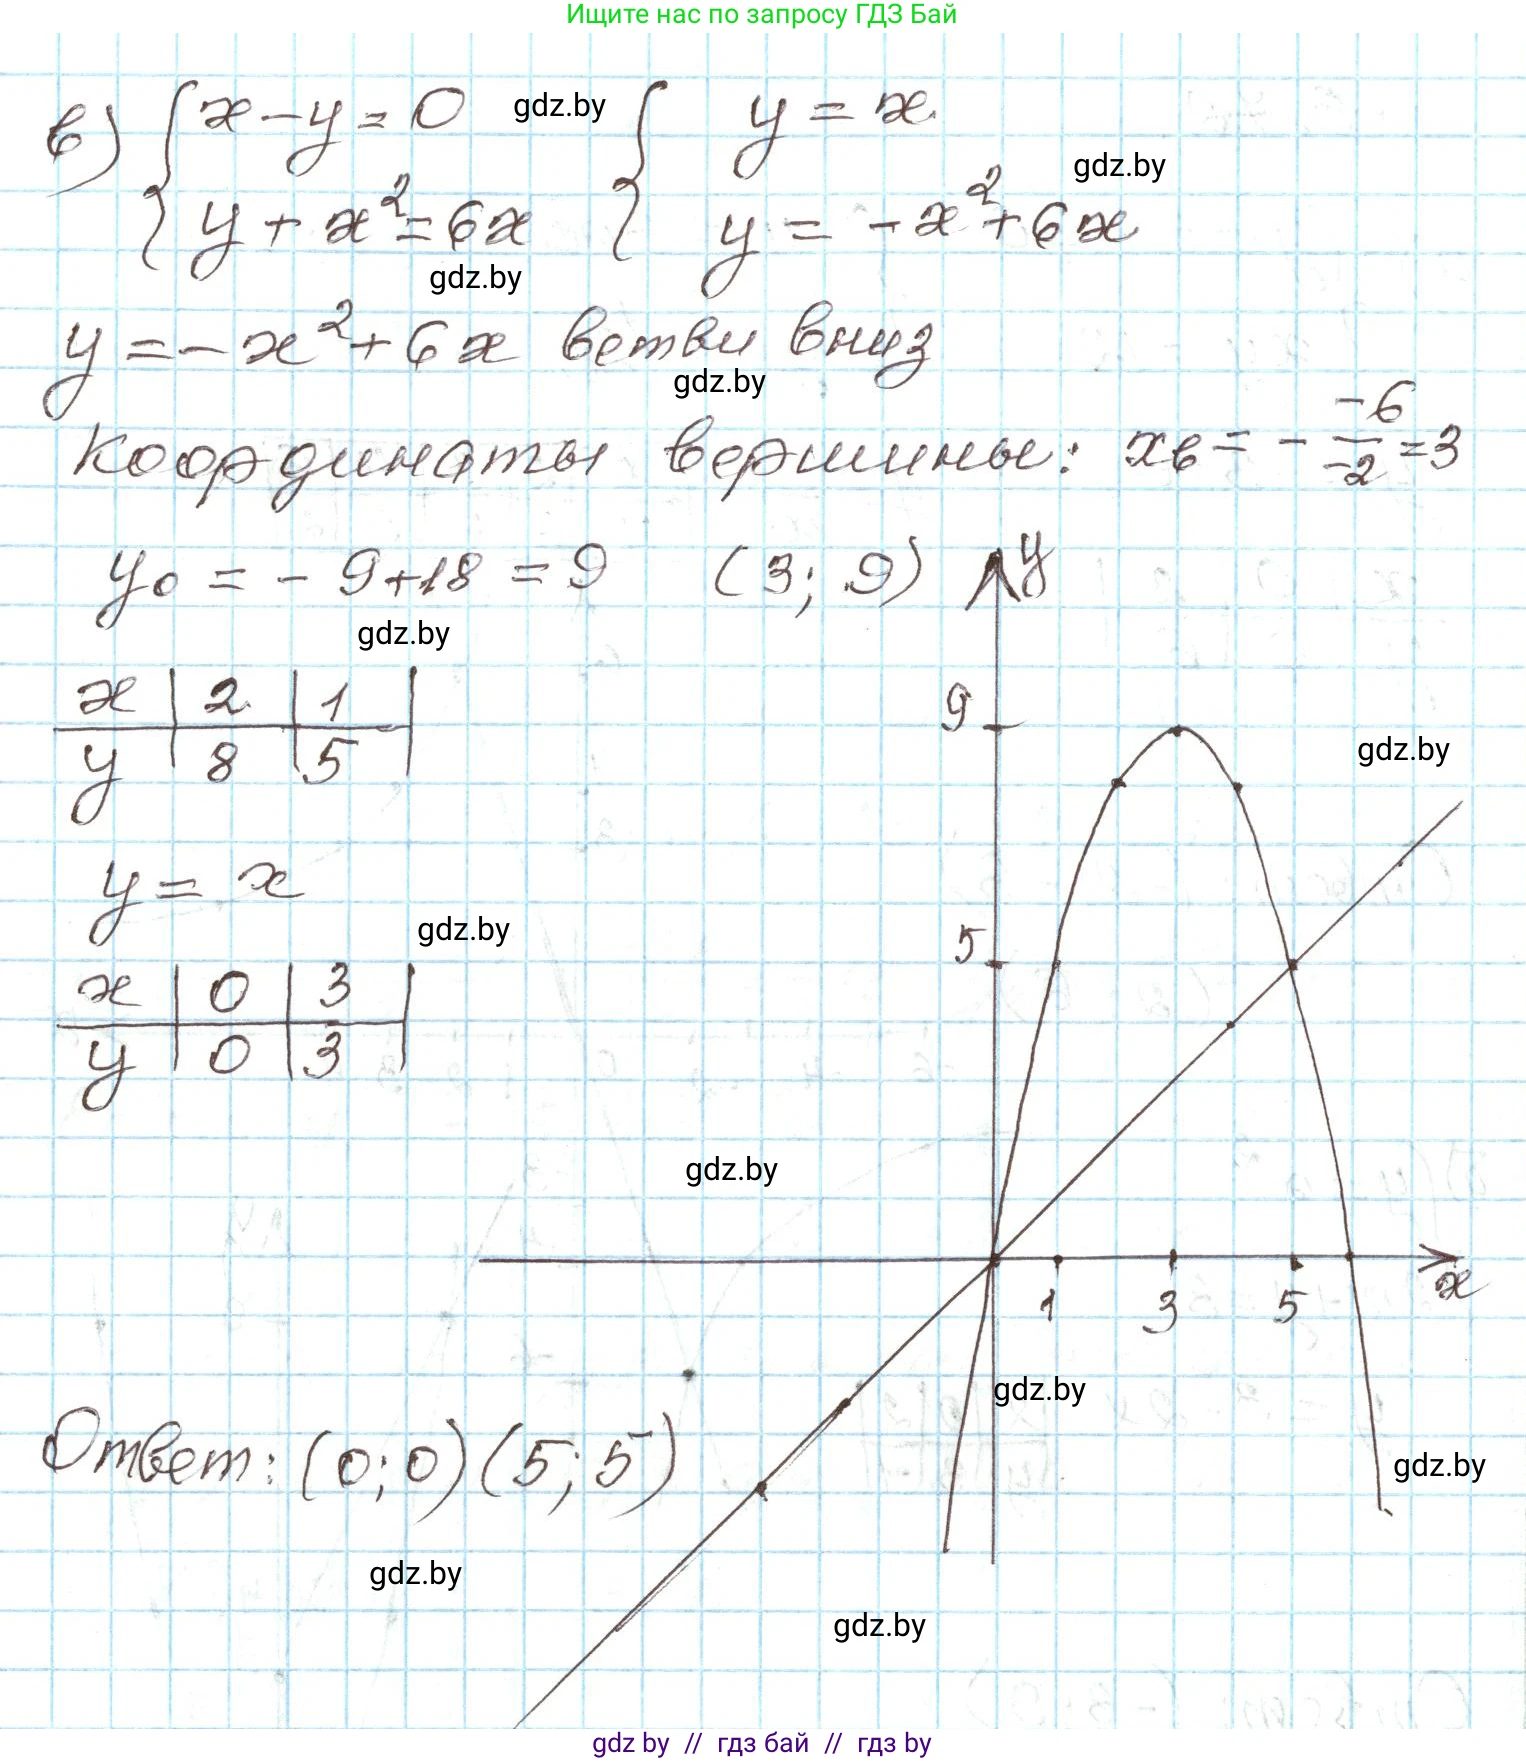 Ищите нас по запросу ГДЗ Бай
в) { x - y = 0 gdz.by { y = x
gdz.by
y + x² = 6x y = -x² + 6x
gdz.by
y = -x² + 6x ветви вниз
gdz.by
Координаты вершины: xв = - -6/-2 = 3
y₀ = - 9 + 18 = 9 (3; 9) y
gdz.by
x | 2 | 1 |
y | 8 | 5 |
9
gdz.by
y = x
gdz.by
5
x | 0 | 3 |
y | 0 | 3 |
gdz.by
1 3 5 x
gdz.by
Ответ: (0; 0) (5; 5)
gdz.by
gdz.by
gdz.by
gdz by // гдз бай // гдз by